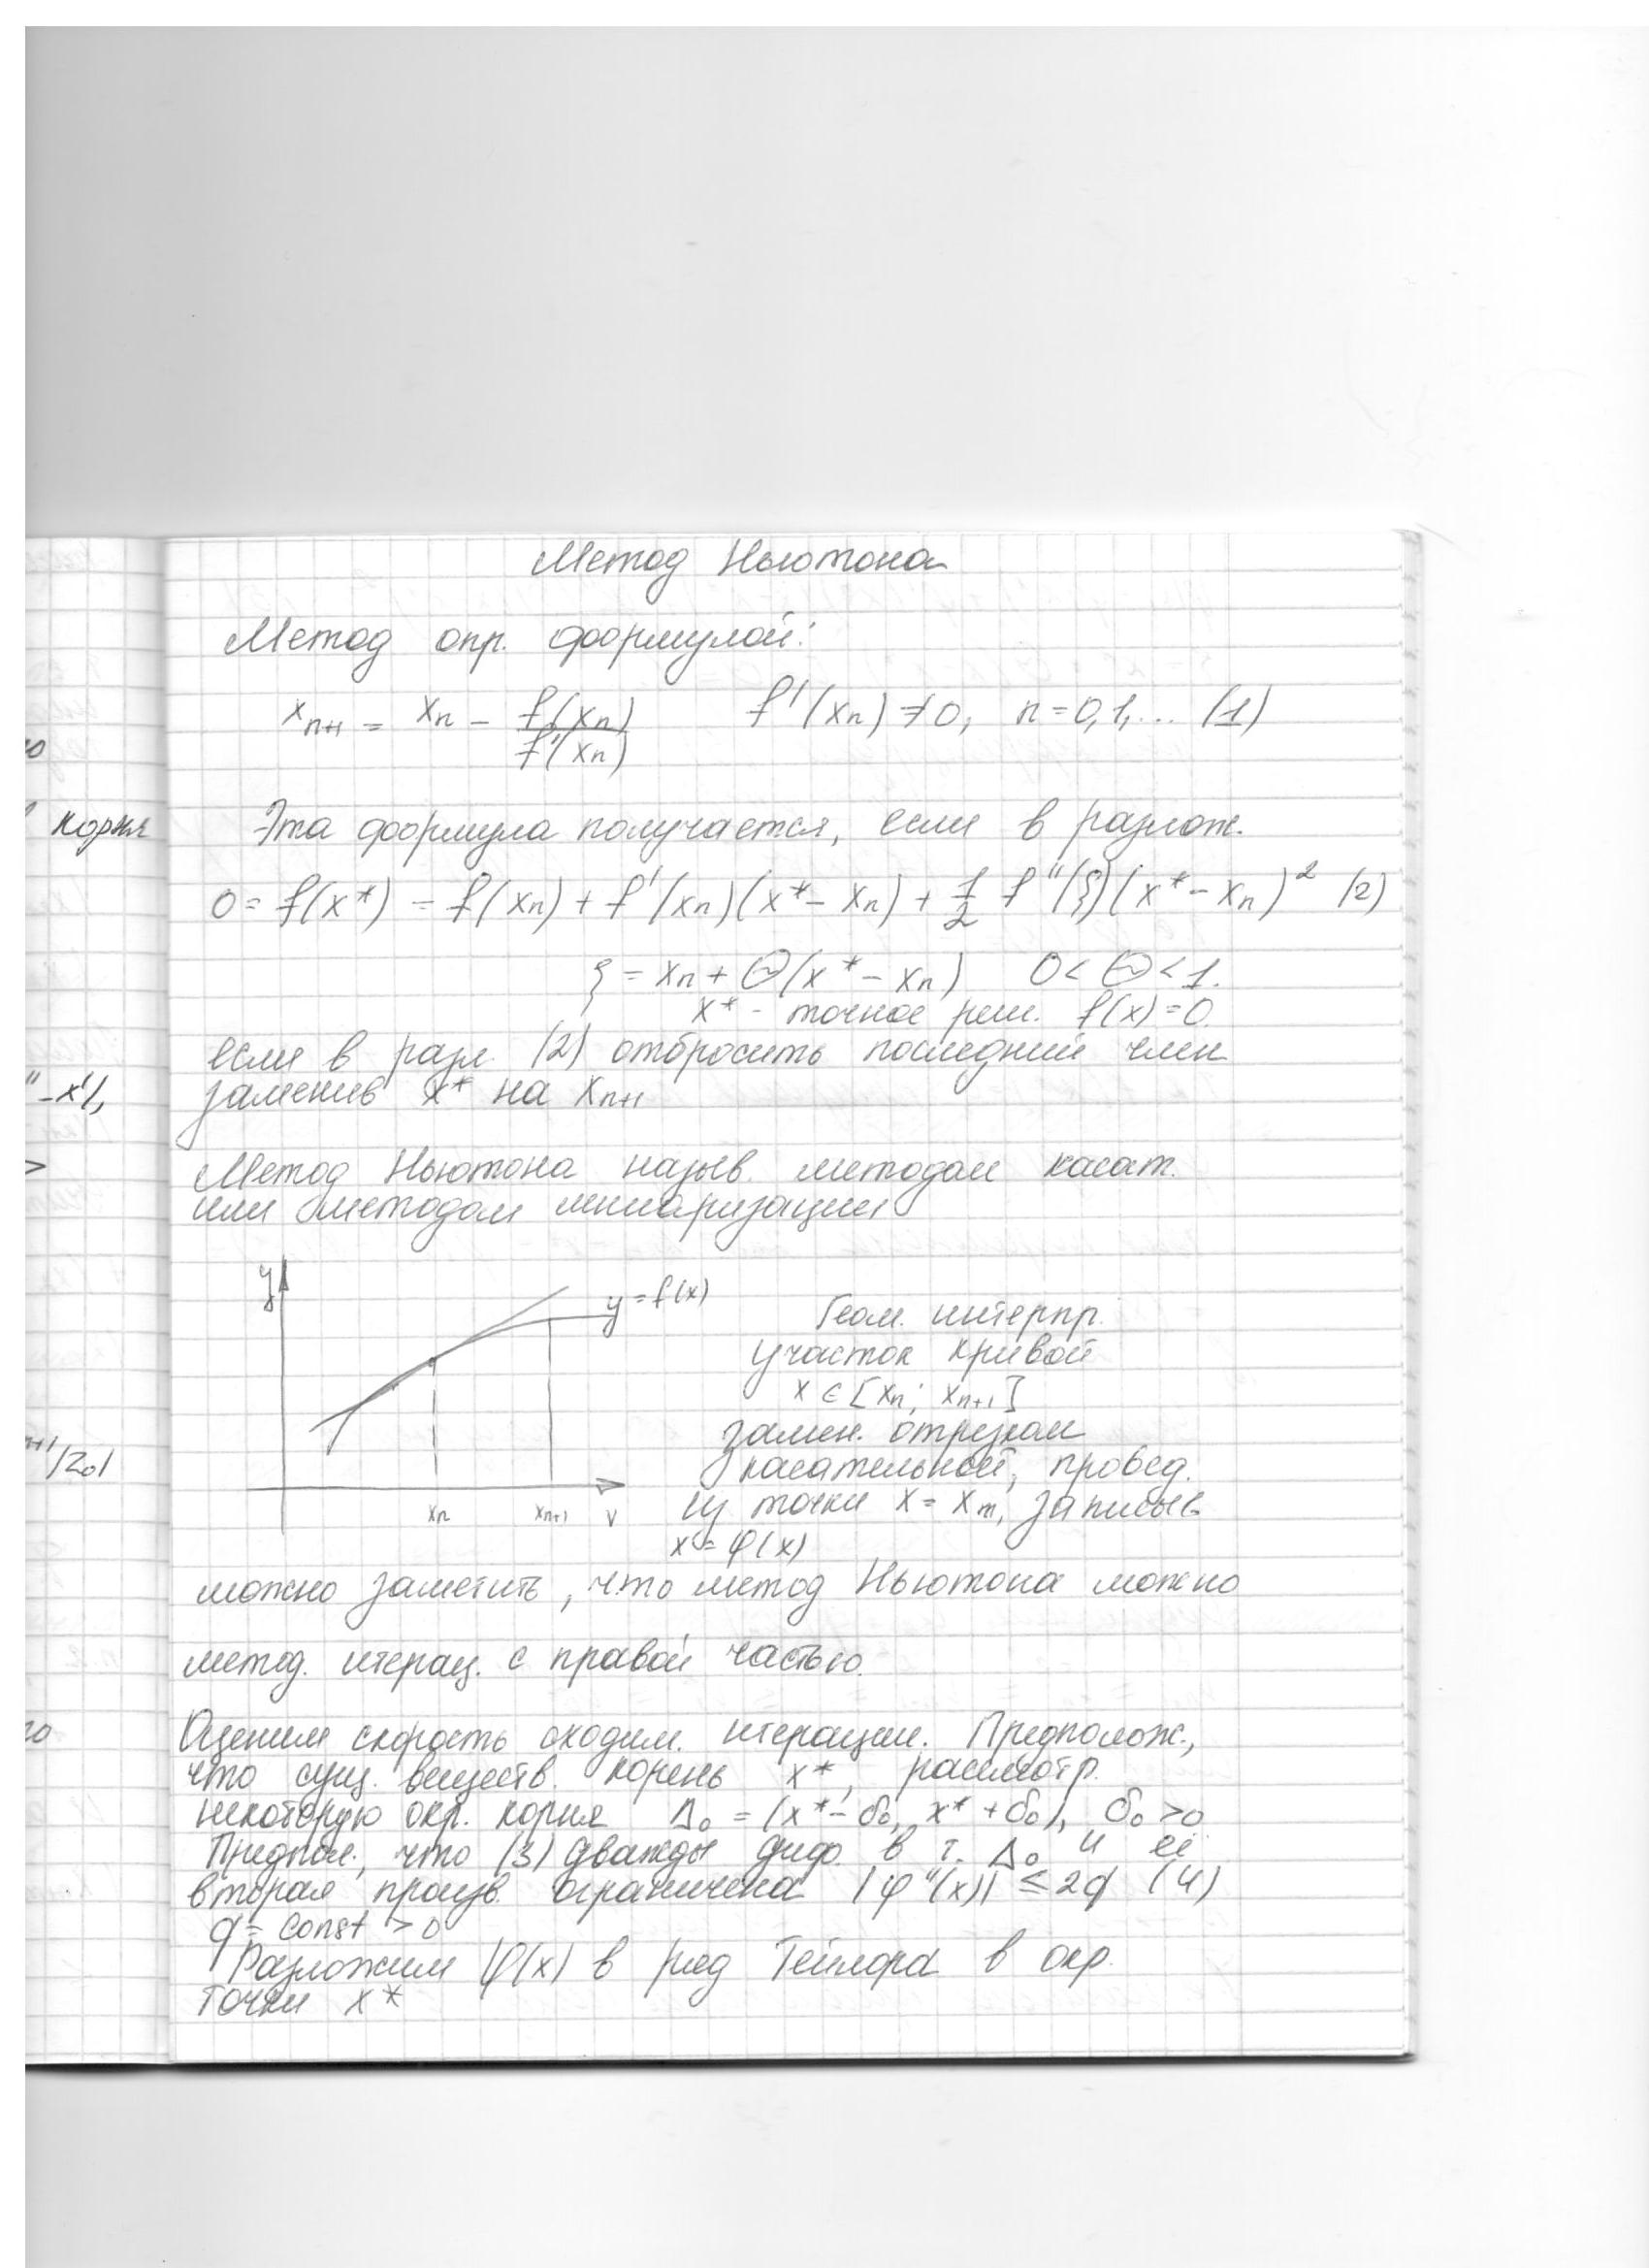 Метод Ньютона
Метод опр. формулой:
x_{n+1} = x_n - f(x_n)/f'(x_n)   f'(x_n) ≠ 0, n = 0,1,... (1)
Эта формула получается, если в разлож.
0 = f(x*) = f(x_n) + f'(x_n)(x* - x_n) + 1/2 f''(ξ)(x* - x_n)² (2)
ξ = x_n + Θ(x* - x_n)   0 < Θ < 1.
x* - точное реш. f(x) = 0.
если в разл. (2) отбросить последний член
заменив x* на x_{n+1}
Метод Ньютона назыв. методом касат.
или методом линиаризации
y
y = f(x)
x_n
x_{n+1}
Геом. интерпр.
участок кривой
x ∈ [x_n; x_{n+1}]
замен. отрезком
касательной, провед.
из точки x = x_m, записыв
x = φ(x)
можно заметить, что метод Ньютона можно
метод. итерац. с правой частью.
Оценим скорость сходим. итерации. Предполож.,
что сущ. веществ. корень x*, рассмотр.
некоторую окр. корня Δ₀ = (x* - δ₀, x* + δ₀), δ₀ > 0
Предпол., что (3) дважды диф. в т. Δ₀ и её
вторая произв. ограничена |φ''(x)| ≤ 2q (4)
q = const > 0
Разложим φ(x) в ряд Тейлора в окр.
точки x*
корня
"-x'|,
>